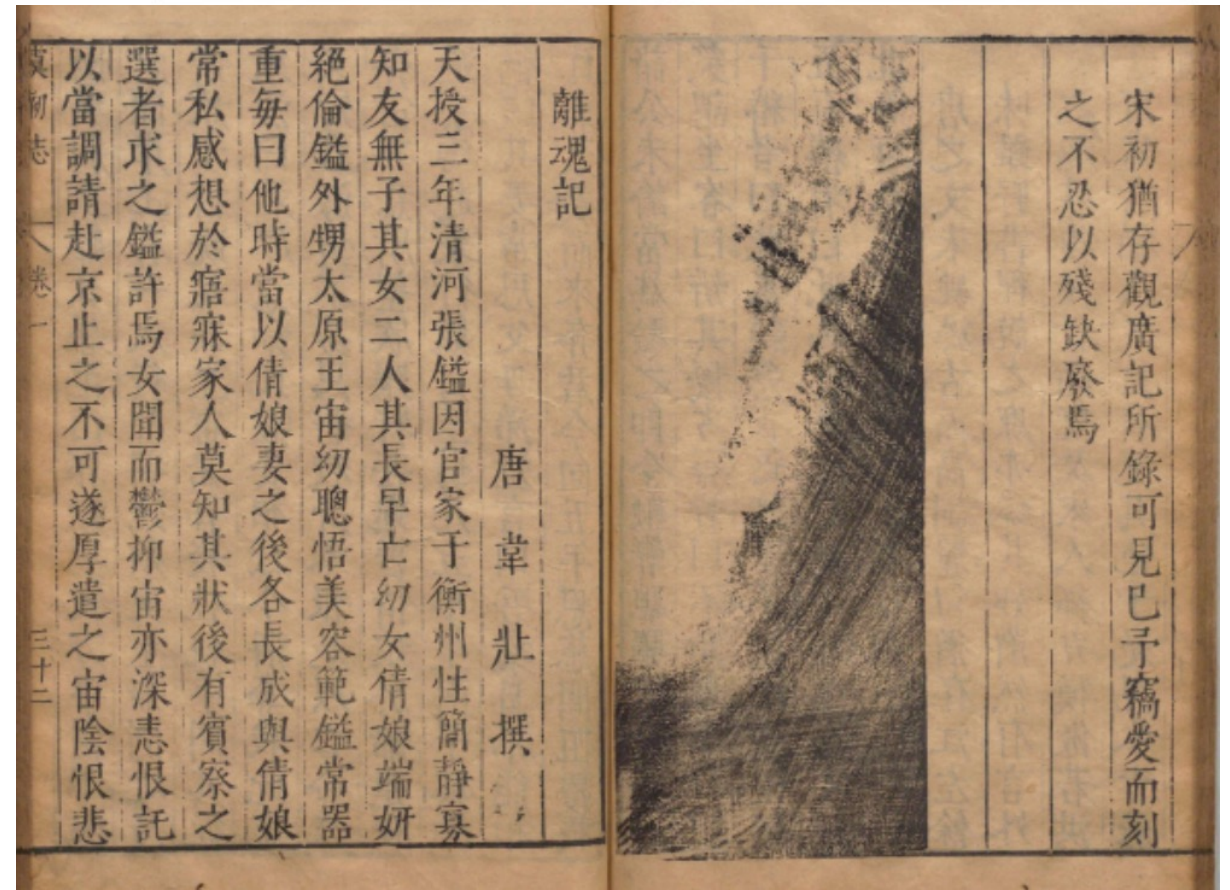 宋初猶存觀廣記所錄可見已予竊愛而刻
之不忍以殘缺廢焉
離魂記
唐韋壯撰
天授三年清河張鎰因官家于衡州性簡靜寡
知友無子其女二人其長早亡幼女倩娘端妍
絕倫鎰外甥太原王宙幼聰悟美容範鎰常器
重每曰他時當以倩娘妻之後各長成與倩娘
常私感想於寤寐家人莫知其狀後有賓寮之
選者求之鎰許焉女聞而鬱抑宙亦深恚恨託
以當調請赴京止之不可遂厚遣之宙陰恨悲
虞初志 卷一 三十二